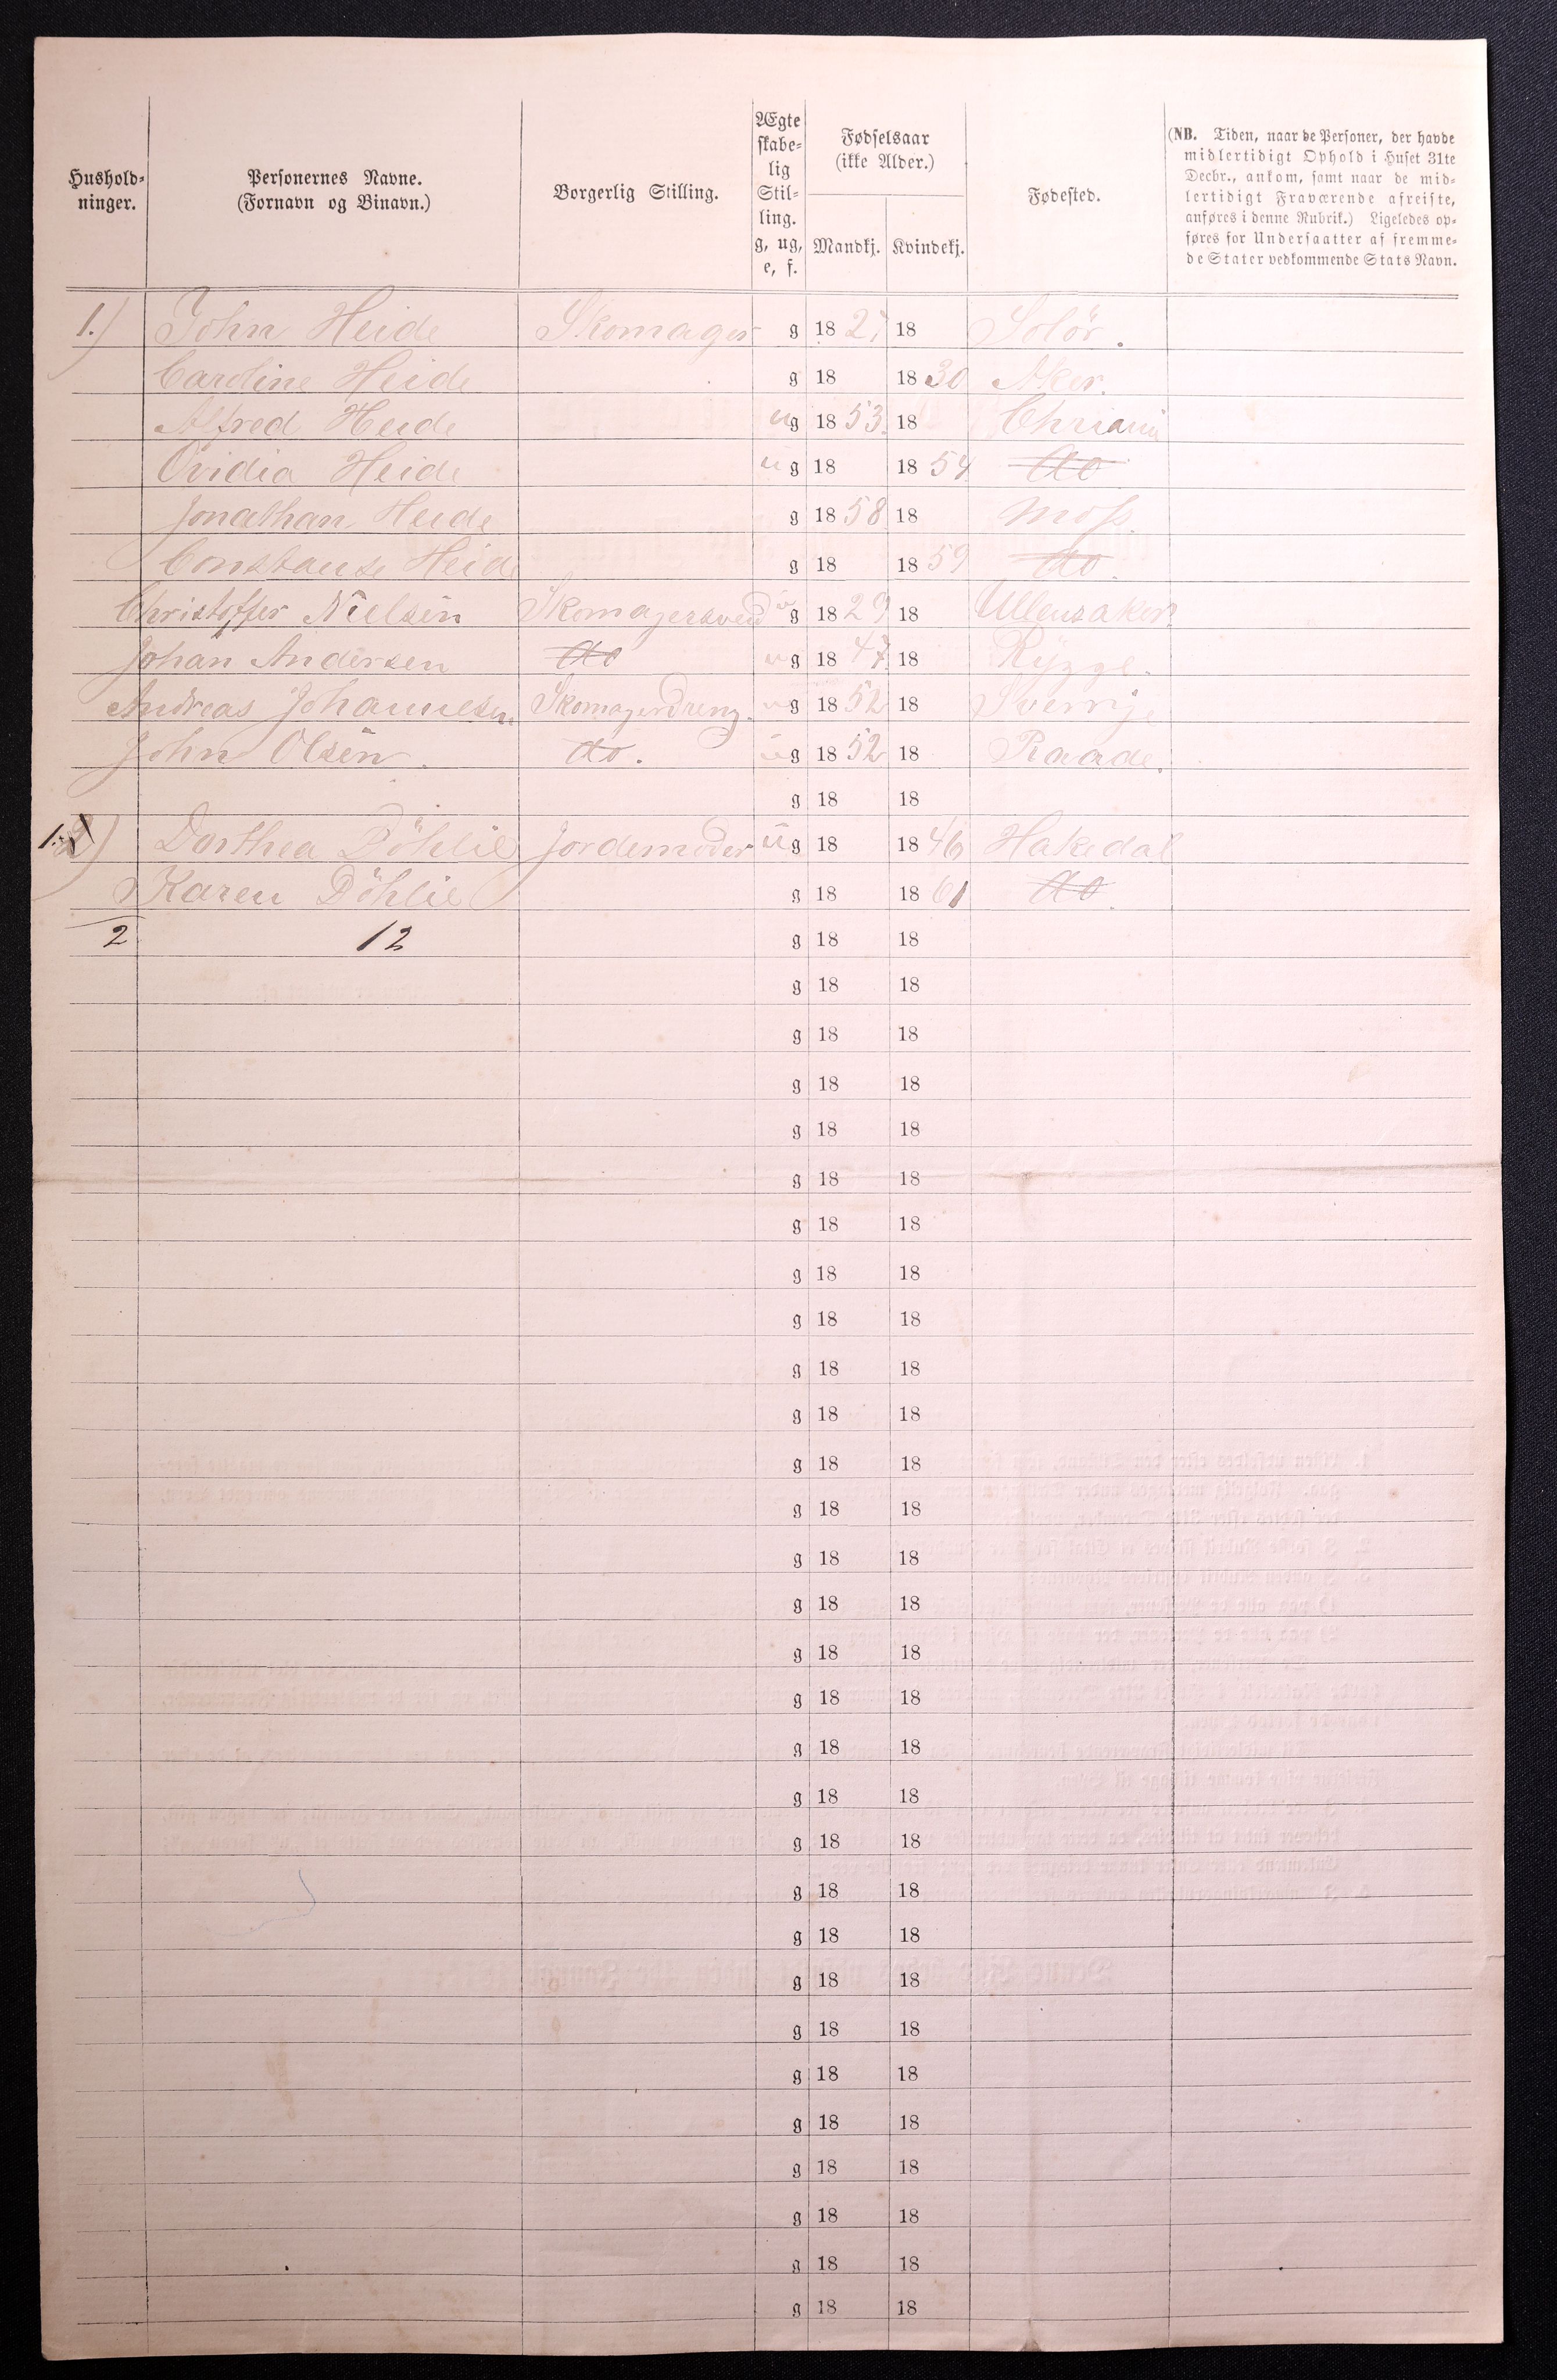 Hushold-
ninger.
Personernes Navne.
(Fornavn og Binavn.)
Borgerlig Stilling.
Ægte
skabe-
lig
Stil-
ling.
g, ug,
e, f.
Fødselsaar
(ikke Alder.)
Mandkj. Kvindekj.
Fødested.
(NB. Tiden, naar de Personer, der havde
midlertidigt Ophold i Huset 31te
Decbr., ankom, samt naar de mid-
lertidigt Fraværende afreiste,
anføres i denne Rubrik.) Ligeledes op-
føres for Undersaatter af fremme-
de Stater vedkommende Stats Navn.
1.) John Heide Skomager g 1827 18 Solör.
Caroline Heide g 18 1830 Aker.
Alfred Heide ug 1853 18 Chriania
Ovidia Heide ug 18 1854 do
Jonathan Heide g 1858 18 Moss.
Constanse Heide g 18 1859 do.
Christoffer Nielsen Skomagersvend ug 1829 18 Ullensaker
Johan Andersen do ug 1847 18 Rygge.
Andreas Johannesen Skomagerdreng ug 1852 18 Sverrige
John Olsen. do. ug 1852 18 Raade.
g 18 18
Dorthea Döhlie Jordemoder ug 18 1846 Hakedal
Karen Döhlie g 18 1861 do.
2 12 g 18 18
g 18 18
g 18 18
g 18 18
g 18 18
g 18 18
g 18 18
g 18 18
g 18 18
g 18 18
g 18 18
g 18 18
g 18 18
g 18 18
g 18 18
g 18 18
g 18 18
g 18 18
g 18 18
g 18 18
g 18 18
g 18 18
g 18 18
g 18 18
g 18 18
g 18 18
g 18 18
g 18 18
g 18 18
g 18 18